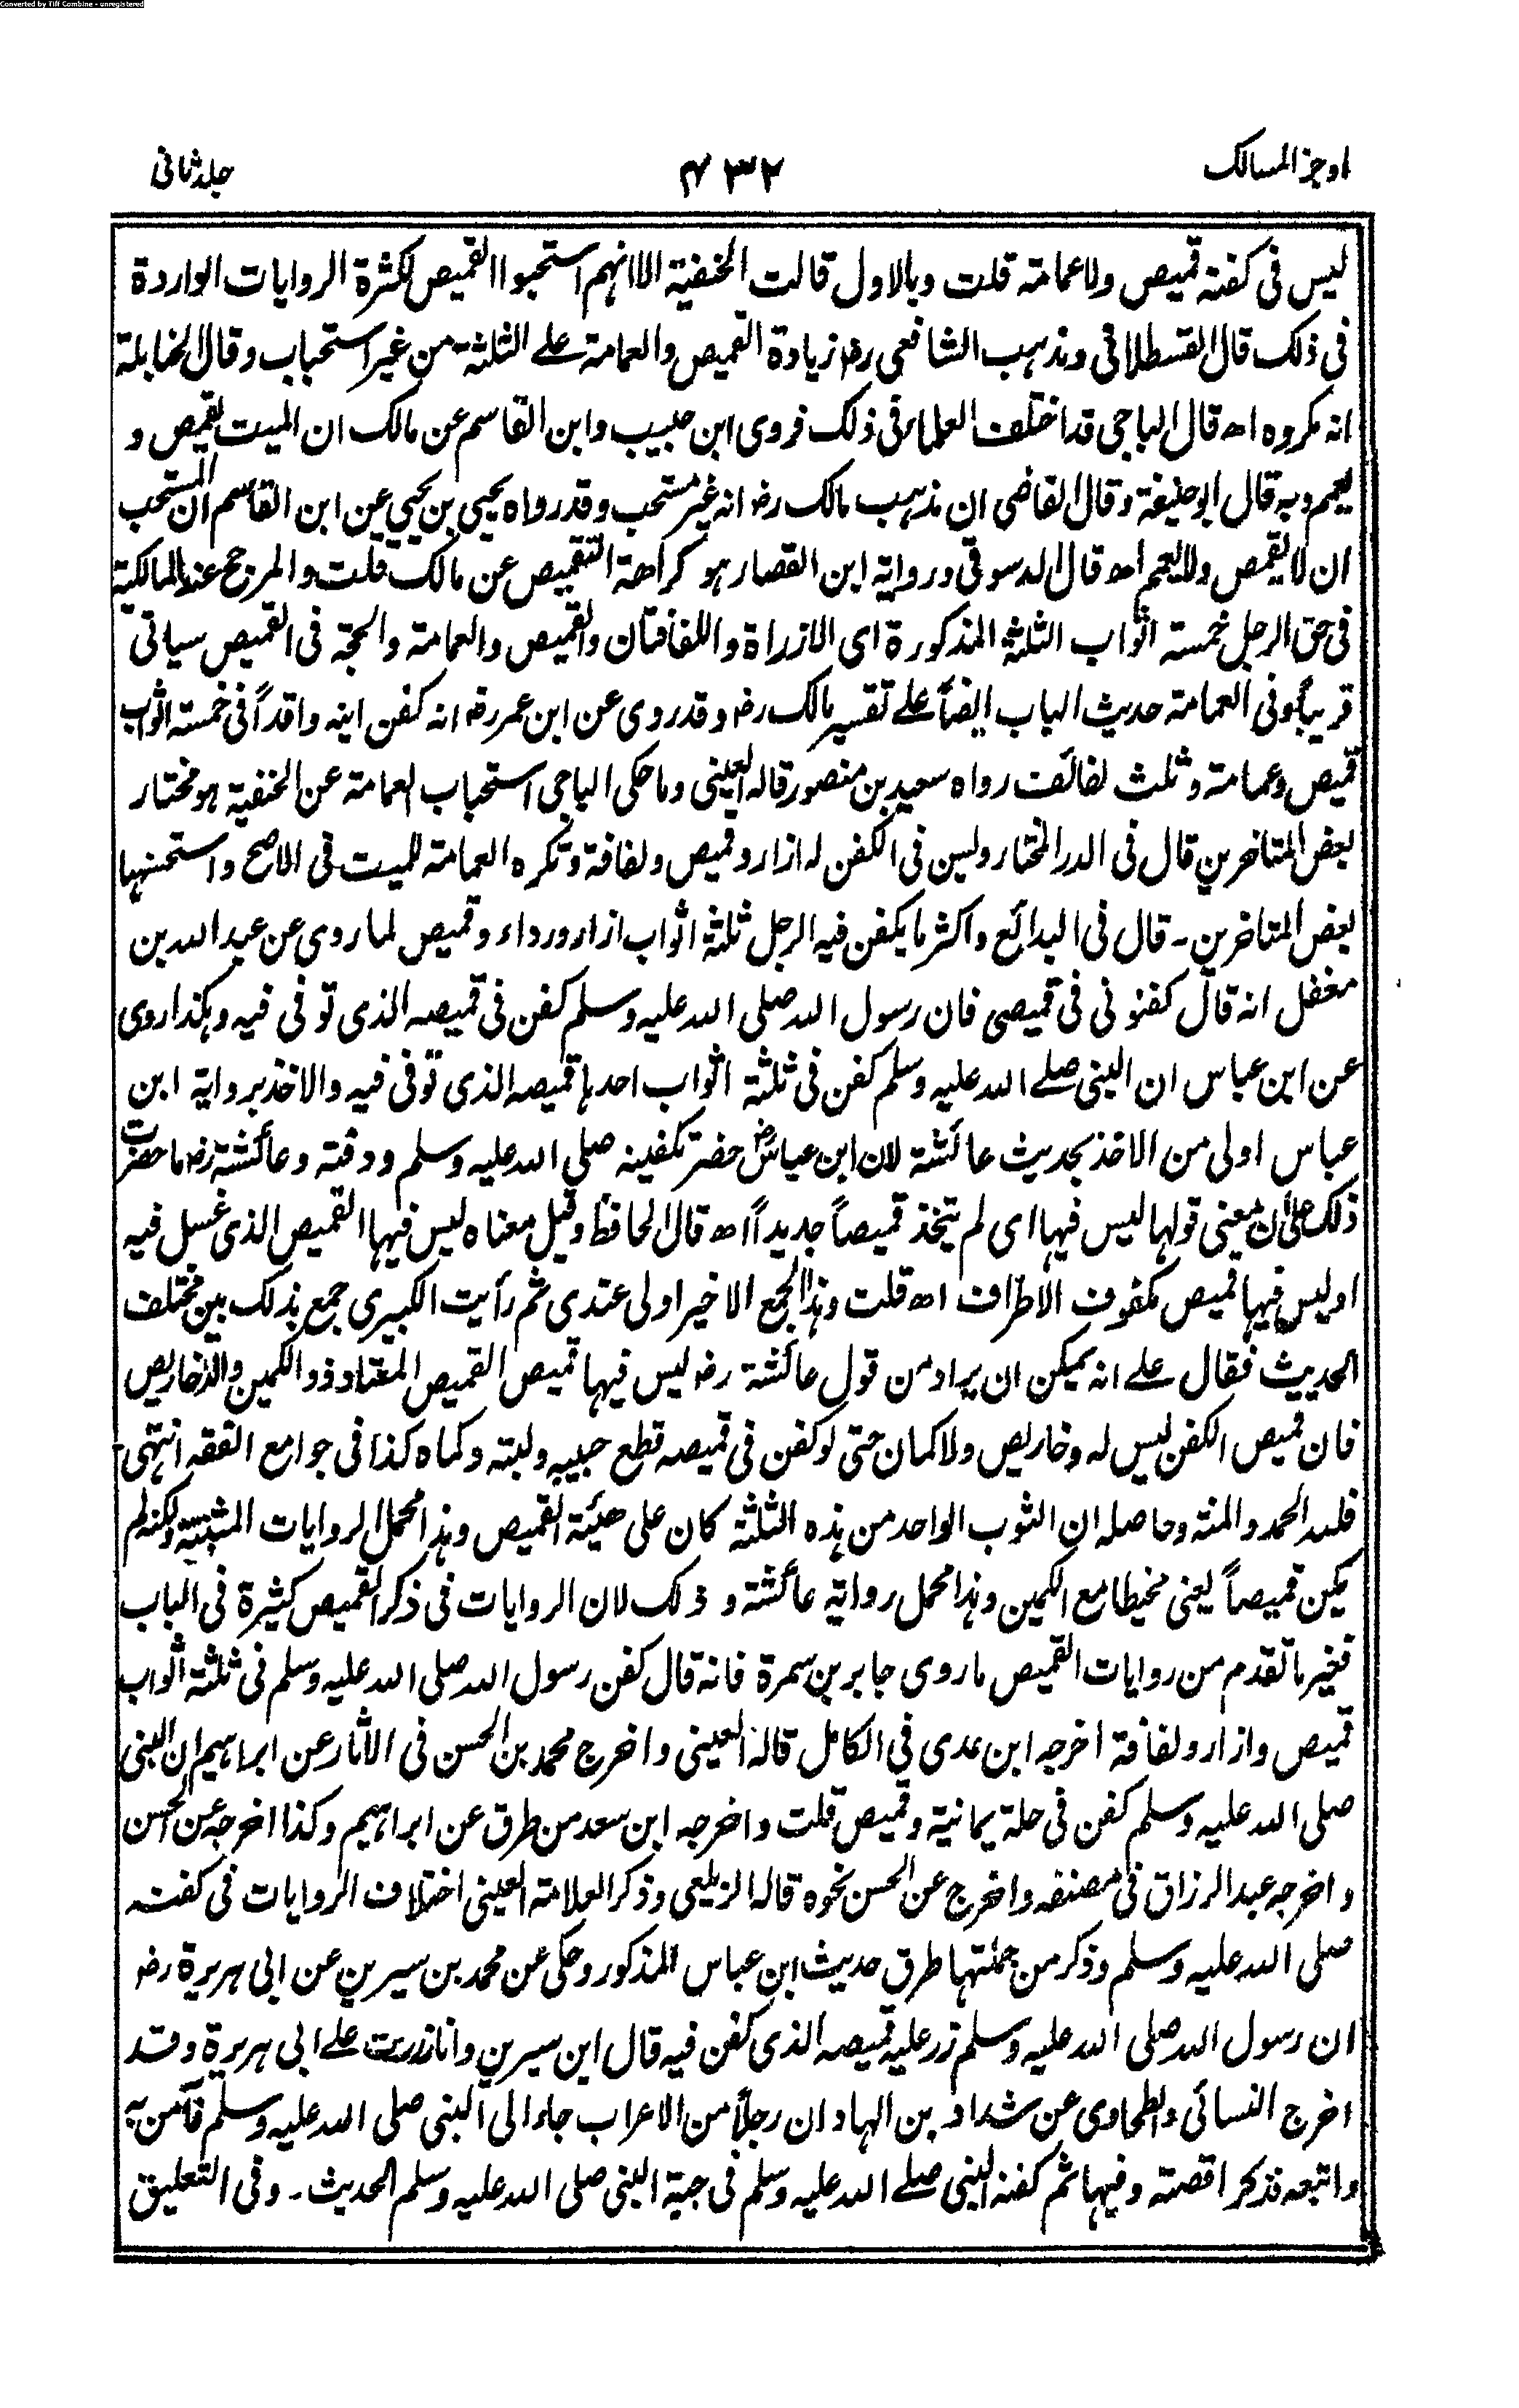 Converted by Tiff Combine - unregistered
اوجز المسالک
۴۳۲
جلد ثانی
لیس فی کفنہ قمیص ولا عمامۃ قلت وبالاول قالت الحنفیۃ الا انہم استحبوا القمیص لکثرۃ الروایات الواردۃ
فی ذلک قال القسطلانی ومذہب الشافعی رضہ زیادۃ القمیص والعمامۃ علے الثلثۃ من غیر استحباب وقال الحنابلۃ
انہ مکروہ اھ قال الباجی قد اختلف العلماء فی ذلک فروی ابن حبیب وابن القاسم عن مالک ان المیت یقمیص و
یعمم وبہ قال ابو حنیفۃ وقال القاضی ان مذہب مالک رضہ انہ غیر مستحب وقد رواہ یحیی بن یحیی عن ابن القاسم ان المستحب
ان لا یقمص ولا یعمم اھ قال الدسوقی وروایۃ ابن القصار ہو کراھۃ التقمیص عن مالک قلت والمرجح عند المالکیۃ
فی حق الرجل خمسۃ اثواب الثلثۃ المذکورۃ ای الازراۃ واللفافتان والقمیص والعمامۃ والحجۃ فی القمیص سیاتی
قریباً وفی العمامۃ حدیث الباب ایضاً علے تفسیر مالک رضہ وقد روی عن ابن عمر رضہ انہ کفن ابنہ واقداً فی خمسۃ اثواب
قمیص وعمامۃ وثلث لفائف رواہ سعید بن منصور قالہ العینی وما حکی الباجی استحباب العمامۃ عن الحنفیۃ ہو مختار
بعض المتاخرین قال فی الدر المختار ولسن فی الکفن لہ ازار وقمیص ولفافۃ وتکرہ العمامۃ للمیت فی الاصح واستحسنہا
بعض المتاخرین ۔ قال فی البدائع واکثر ما یکفن فیہ الرجل ثلثۃ اثواب ازار ورداء وقمیص لما روی عن عبد اللہ بن
مغفل انہ قال کفنونی فی قمیصی فان رسول اللہ صلی اللہ علیہ وسلم کفن فی قمیصہ الذی توفی فیہ وہکذا روی
عن ابن عباس ان النبی صلے اللہ علیہ وسلم کفن فی ثلثۃ اثواب احدہا قمیصہ الذی توفی فیہ والاخذ بروایۃ ابن
عباس اولی من الاخذ بحدیث عائشۃ لان ابن عباسؓ حضر تکفینہ صلی اللہ علیہ وسلم ودفنہ وعائشۃ رضہ ما حضرت
ذلک علیٰ ان معنی قولہا لیس فیہا ای لم یتخذ قمیصاً جدیداً اھ قال الحافظ وقیل معناہ لیس فیہا القمیص الذی غسل فیہ
او لیس فیہا قمیص مکفوف الاطراف اھ قلت وہذا الجمع الاخیر اولی عندی ثم رأیت الکبیری جمع بذلک بین مختلف
الحدیث فقال علے انہ یمکن ان یراد من قول عائشۃ رضہ لیس فیہا قمیص القمیص المعتاد ذو الکمین والدخاریص
فان قمیص الکفن لیس لہ دخاریص ولا کمان حتی لو کفن فی قمیصہ قطع جیبہ ولبتہ وکماہ کذا فی جوامع الفقہ انتہی
فللہ الحمد والمنۃ وحاصلہ ان الثوب الواحد من ہذہ الثلثۃ کان علی ھیئۃ القمیص وہذا محمل الروایات المثبتۃ ولکنہ لم
یکن قمیصاً یعنی مخیطا مع الکمین وہذا محمل روایۃ عائشۃ و ذلک لان الروایات فی ذکر القمیص کثیرۃ فی الباب
فغیر ما تقدم من روایات القمیص ما روی جابر بن سمرۃ فانہ قال کفن رسول اللہ صلی اللہ علیہ وسلم فی ثلثۃ اثواب
قمیص وازار ولفافۃ اخرجہ ابن عدی فی الکامل قالہ العینی واخرج محمد بن الحسن فی الاثار عن ابراہیم ان النبی
صلی اللہ علیہ وسلم کفن فی حلۃ یمانیۃ وقمیص قلت واخرجہ ابن سعد من طرق عن ابراہیم وکذا اخرجہ عن الحسن
واخرجہ عبد الرزاق فی مصنفہ واخرج عن الحسن نحوہ قالہ الزیلعی وذکر العلامۃ العینی اختلاف الروایات فی کفنہ
صلی اللہ علیہ وسلم وذکر من جملتہا طرق حدیث ابن عباس المذکور وحکی عن محمد بن سیرین عن ابی ہریرۃ رضہ
ان رسول اللہ صلی اللہ علیہ وسلم زر علیہ قمیصہ الذی کفن فیہ قال ابن سیرین وانا زررت علے ابی ہریرۃ وقد
اخرج النسائی والطحاوی عن شداد بن الہاد ان رجلاً من الاعراب جاء الی النبی صلی اللہ علیہ وسلم فآمن بہ
واتبعہ فذکر اقصتہ وفیہا ثم کفنہ النبی صلے اللہ علیہ وسلم فی جبۃ النبی صلی اللہ علیہ وسلم الحدیث ۔ وفی التعلیق